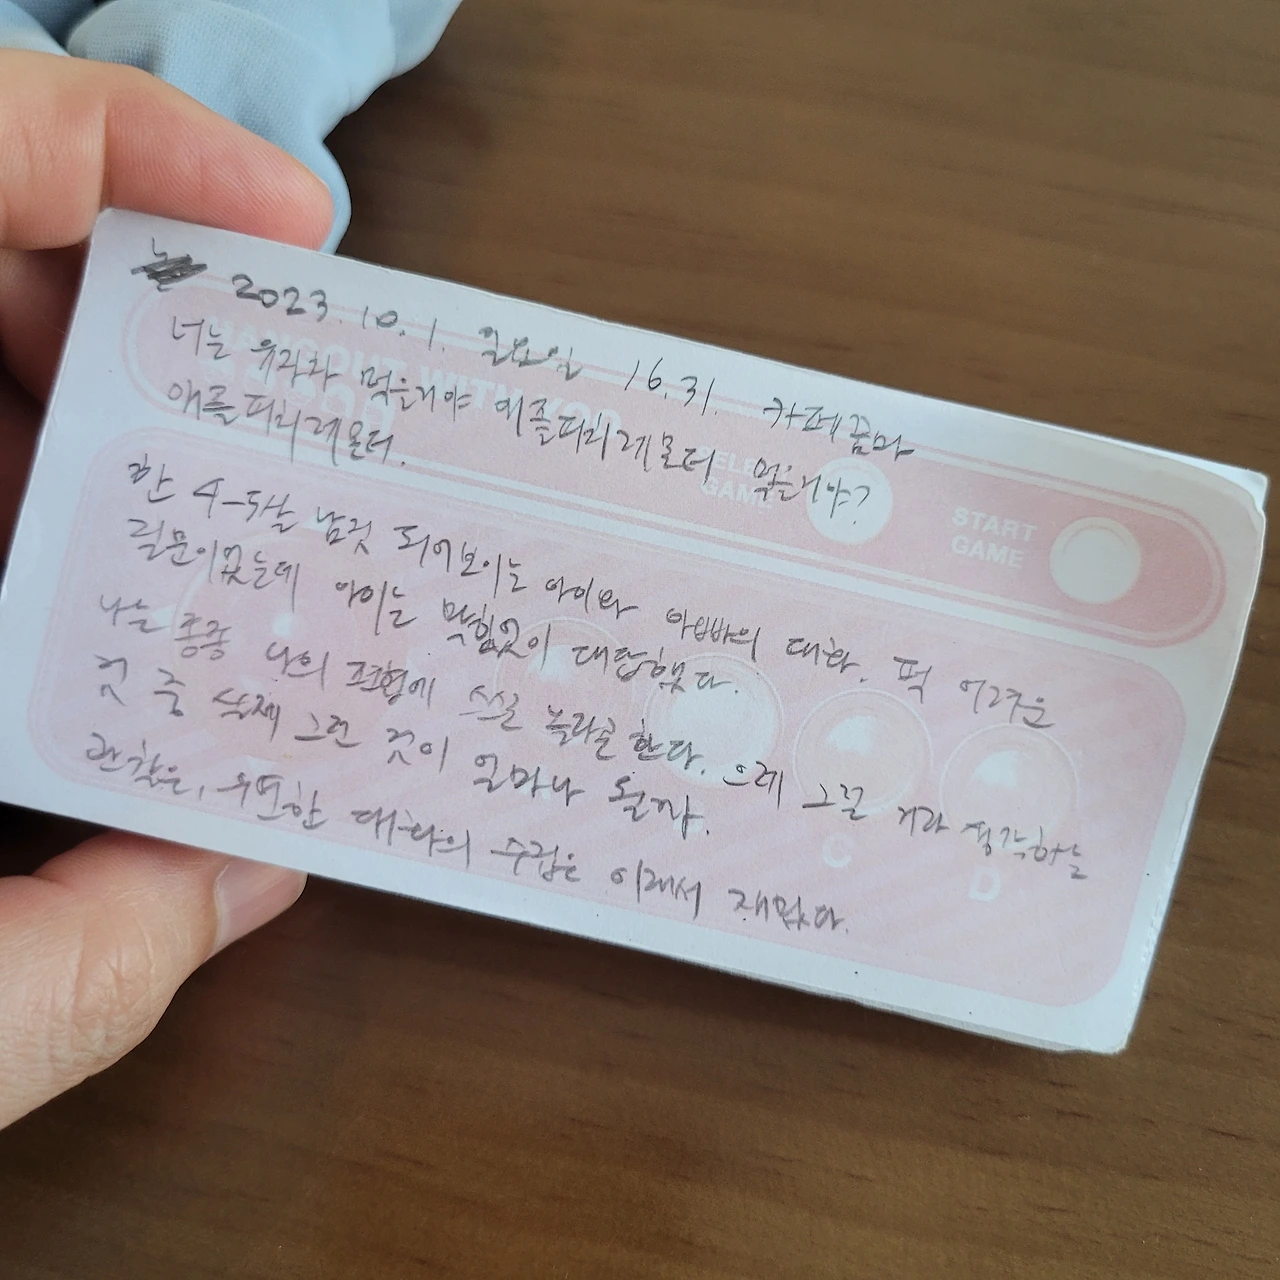 2023. 10. 1. 일요일 16.31. 카페꼼마
너는 유자차 먹을거야 애플티리레몬터 먹을거야?
애플티리레몬터.
한 4-5살 남짓 되어보이는 아이와 아빠의 대화. 퍽 어려운
질문이었는데 아이는 막힘없이 대답했다.
나는 종종 나의 편협에 스스로 놀라곤 한다. 으레 그럴 거라 생각하는
것 중 실제 그런 것이 얼마나 될까.
관찰은, 우연한 대화의 수집은 이래서 재밌다.
HANGOUT WITH YOO
SELECT
GAME
START
GAME
C
D